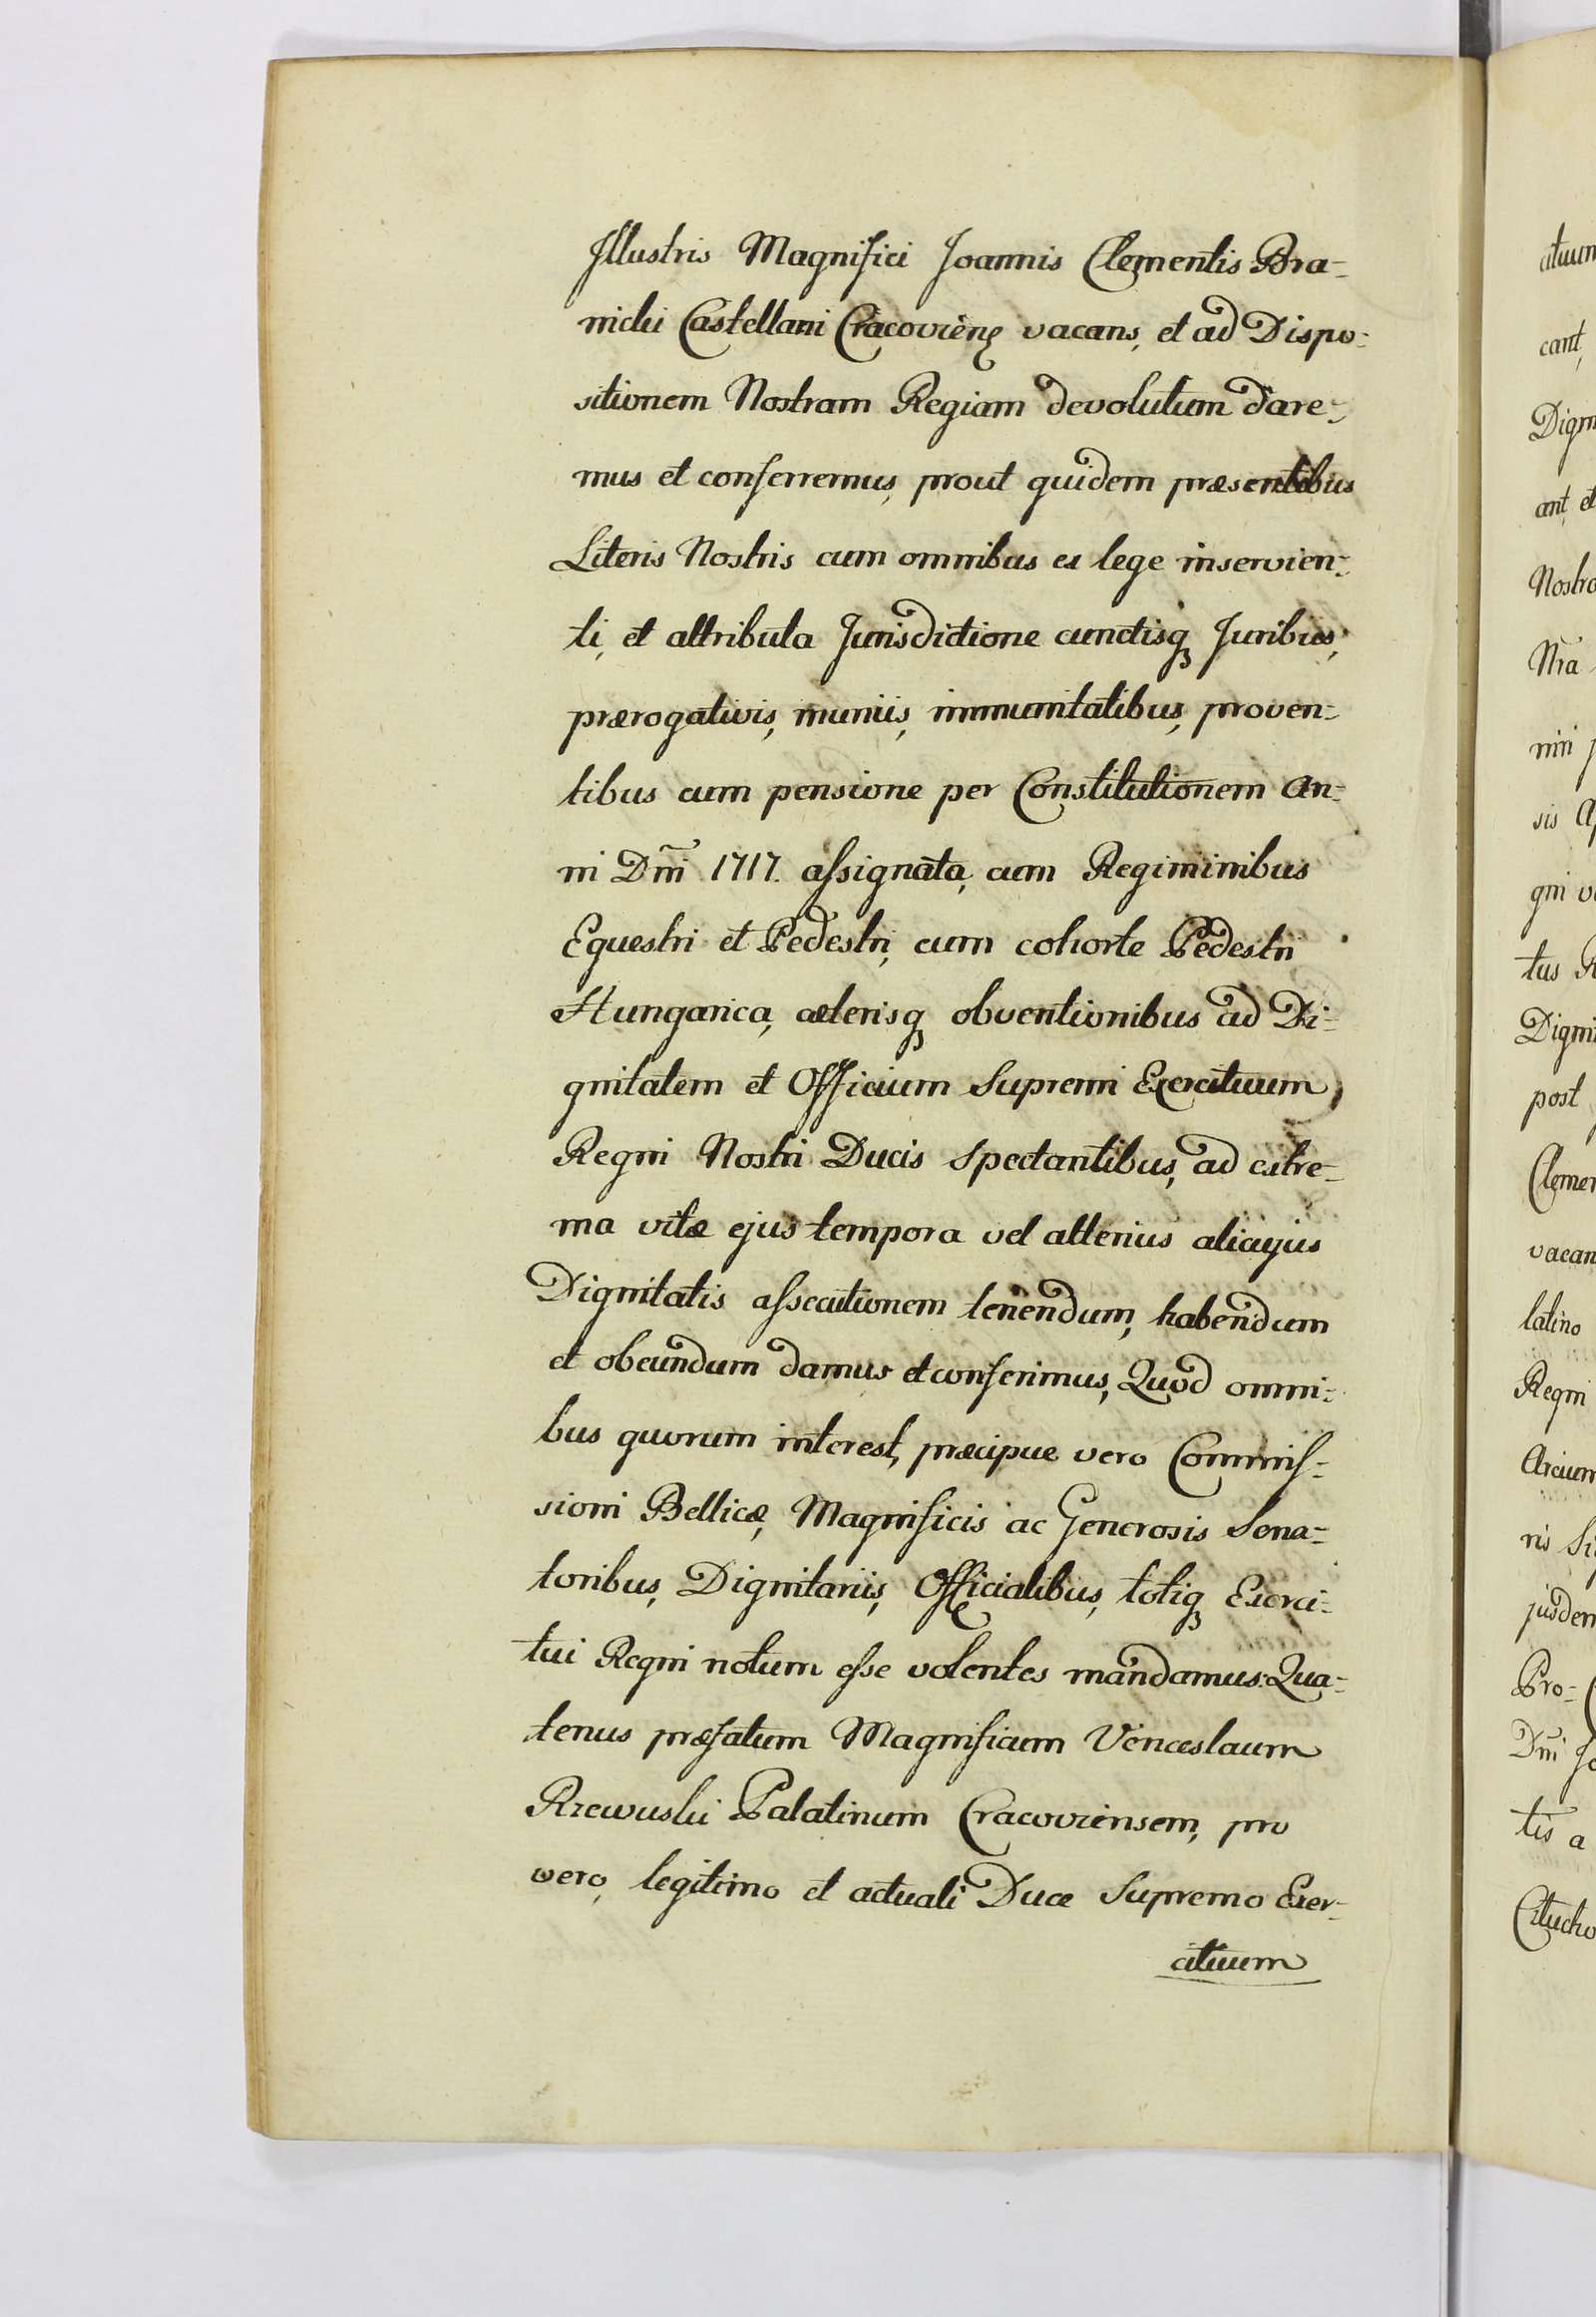 Illustris Magnifici Joannis Clementis Bra-
nicki Castellani Cracovieñ vacans, et ad Dispo-
sitionem Nostram Regiam devolutum dare-
mus et conferremus, prout quidem præsentibus
Literis Nostris cum omnibus ex lege inservien-
ti, et attributa Jurisdictione cunctisq Juribus,
prærogativis, muniis, immunitatibus, proven-
tibus cum pensione per Constitutionem An-
ni Dñi 1717. assignata, cum Regiminibus
Equestri et Pedestri, cum cohorte Pedestri
Hungarica, cæterisq obventionibus ad Di-
gnitatem et Officium Supremi Exercituum
Regni Nostri Ducis spectantibus, ad extre-
ma vitæ ejus tempora vel alterius alicujus
Dignitatis assecutionem tenendum, habendum
et obeundum damus et conferimus, Quod omni-
bus quorum interest, præcipue vero Commis-
sioni Bellicæ, Magnificis ac Generosis Sena-
toribus, Dignitariis, Officialibus, totiq Exerci-
tui Regni notum esse volentes mandamus: Qua-
tenus præfatum Magnificum Venceslaum
Rzewuski Palatinum Cracoviensem, pro
vero, legitimo et actuali Duce Supremo Exer-
cituum
cituum
cant,
Dign
ant, et
Nostro
Nra
niri
sis
gni
tus
Digni
post
Clemen
vacan
latino
Regni
Arcium
ris
jusdem
Pro-
Dñi Jo
tis a